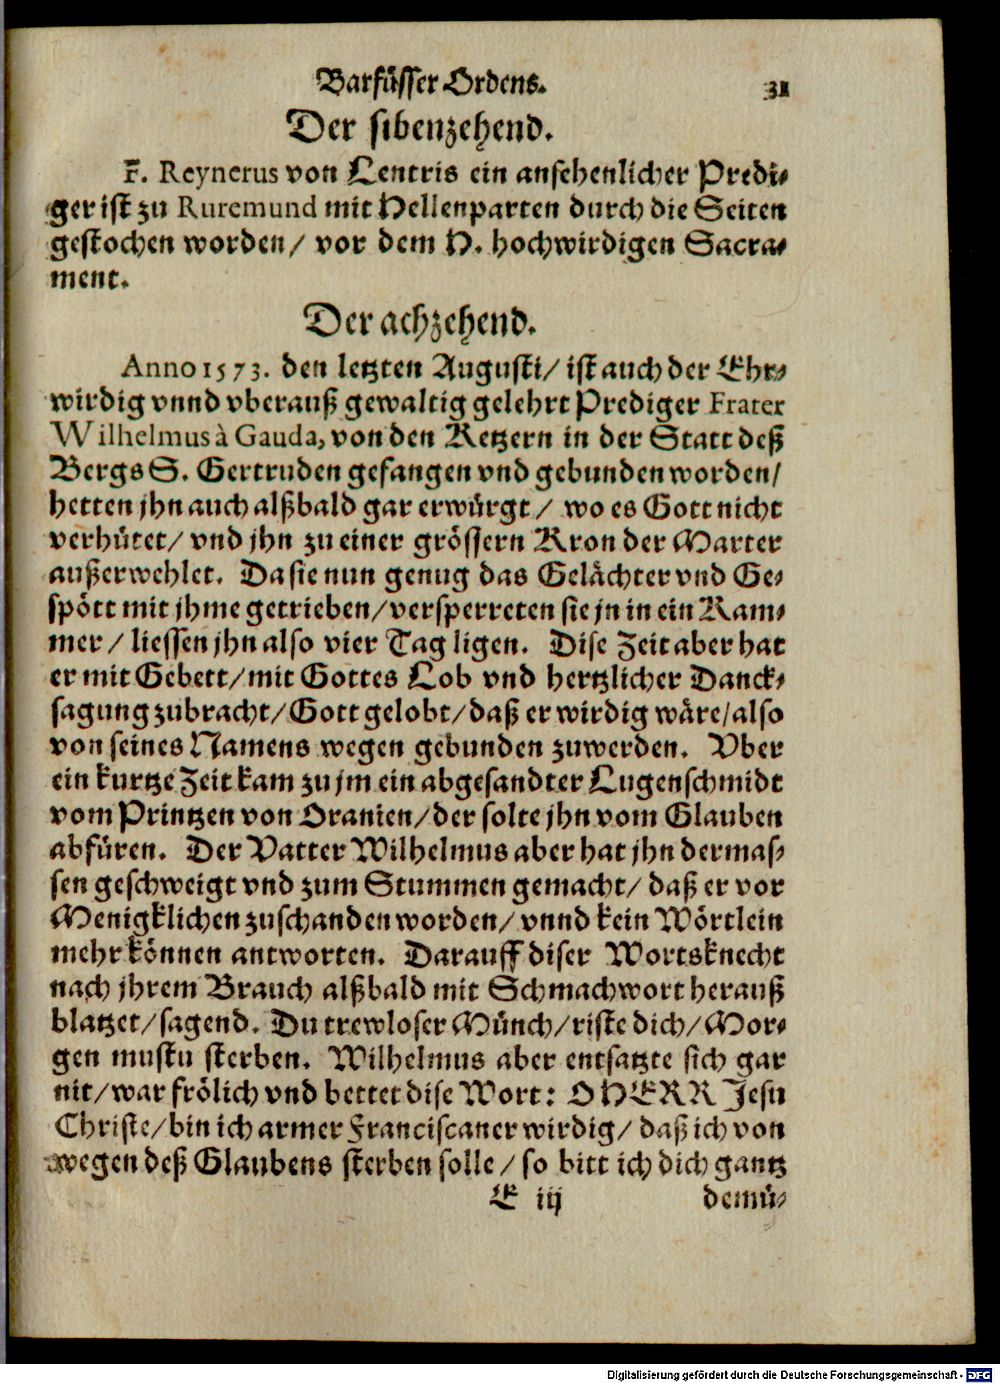 Barfüsser Ordens. 31
Der sibenzehend.
F. Reynerus von Lentris ein ansehenlicher Predi-
ger ist zu Ruremund mit Hellenparten durch die Seiten
gestochen worden/ vor dem H. hochwirdigen Sacra-
ment.
Der achzehend.
Anno 1573. den letzten Augusti/ ist auch der Ehr-
wirdig vnnd vberauß gewaltig gelehrt Prediger Frater
Wilhelmus à Gauda, von den Ketzern in der Statt deß
Bergs S. Gertruden gefangen vnd gebunden worden/
hetten jhn auch alßbald gar erwürgt/ wo es Gott nicht
verhütet/ vnd jhn zu einer grössern Kron der Marter
außerwehlet. Da sie nun genug das Gelächter vnd Ge-
spött mit jhme getrieben/ versperreten sie jn in ein Kam-
mer/ liessen jhn also vier Tag ligen. Dise Zeit aber hat
er mit Gebett/ mit Gottes Lob vnd hertzlicher Danck-
sagung zubracht/ Gott gelobt/ daß er wirdig wäre/ also
von seines Namens wegen gebunden zuwerden. Vber
ein kurtze Zeit kam zu jm ein abgesandter Lugenschmidt
vom Printzen von Oranien/ der solte jhn vom Glauben
abfüren. Der Vatter Wilhelmus aber hat jhn dermas-
sen geschweigt vnd zum Stummen gemacht/ daß er vor
Menigklichen zuschanden worden/ vnnd kein Wörtlein
mehr können antworten. Darauff diser Wortsknecht
nach jhrem Brauch alßbald mit Schmachwort herauß
blatzet/ sagend. Du trewloser Münch/ riste dich/ Mor-
gen mustu sterben. Wilhelmus aber entsatzte sich gar
nit/ war frölich vnd bettet dise Wort: O HERR Jesu
Christe/ bin ich armer Franciscaner wirdig/ daß ich von
wegen deß Glaubens sterben solle/ so bitt ich dich gantz
E iij demü-
Digitalisierung gefördert durch die Deutsche Forschungsgemeinschaft - DFG